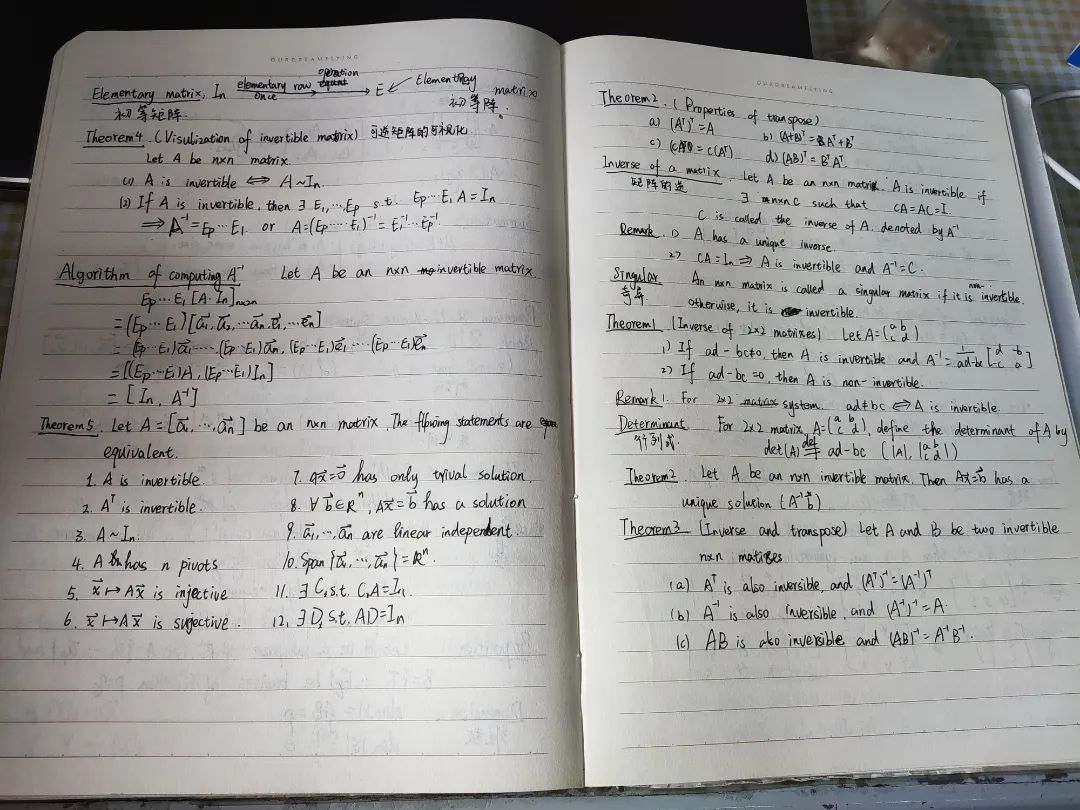 OURDREAMFLYING
Elementary matrix. In elementary row operation once → E ← Elementary matrix
初等矩阵 初等阵.
Theorem4. (Visulization of invertible matrix) 可逆矩阵的可视化.
Let A be n×n matrix.
(1) A is invertible ⇔ A~In.
(2) If A is invertible, then ∃ E₁,…,Ep s.t. Ep…E₁A=In
⇒ A⁻¹=Ep…E₁ or A=(Ep…E₁)⁻¹=E₁⁻¹…Ep⁻¹.
Algorithm of computing A⁻¹ Let A be an n×n invertible matrix.
Ep…E₁[A In]n×2n
=(Ep…E₁)[a⃗₁, a⃗₂, …a⃗n, e⃗₁, …e⃗n]
=(Ep…E₁)a⃗₁…, (Ep…E₁)a⃗n, (Ep…E₁)e⃗₁…(Ep…E₁)e⃗n
=[(Ep…E₁)A, (Ep…E₁)In]
=[In, A⁻¹]
Theorem5. Let A=[a⃗₁,…,a⃗n] be an n×n matrix, The fllowing statements are
equivalent.
1. A is invertible.
2. Aᵀ is invertible.
3. A~In.
4. A has n pivots
5. x⃗↦Ax⃗ is injective
6. x⃗↦Ax⃗ is sujective.
7. ax⃗=0⃗ has only trival solution.
8. ∀b⃗∈Rⁿ, Ax⃗=b⃗ has a solution
9. a⃗₁,…,a⃗n are linear independent.
10. Span{a⃗₁,…,a⃗n}=Rⁿ.
11. ∃ C, s.t. CA=In
12. ∃ D, s.t. AD=In
OURDREAMFLYING
Theorem2. (Properties of transpose)
a) (Aᵀ)ᵀ=A b) (A+B)ᵀ=Aᵀ+Bᵀ
c) (cA)ᵀ=c(Aᵀ) d) (AB)ᵀ=BᵀAᵀ.
Inverse of a matrix. Let A be an n×n matrix. A is invertible if
矩阵的逆 ∃ n×n C such that CA=AC=I.
C is called the inverse of A, denoted by A⁻¹
Remark. 1) A has a unique inverse.
2) CA=In ⇒ A is invertible and A⁻¹=C.
Singular An n×n matrix is called a singular matrix if it is non-invertible.
奇异 otherwise, it is invertible.
Theorem1. (Inverse of 2×2 matrixes) Let A=(a b
c d)
1) If ad-bc≠0, then A is invertible and A⁻¹=1/(ad-bc)[d -b
-c a]
2) If ad-bc=0, then A is non-invertible.
Remark1. For 2×2 matrix system. ad≠bc ⇔ A is invertible.
Determinant For 2×2 matrix, A=(a b
c d), define the determinant of A by
行列式. det(A) def= ad-bc (|A|, |a b
c d|)
Theorem2. Let A be an n×n invertible matrix. Then Ax⃗=b⃗ has a
unique solution (A⁻¹b⃗)
Theorem3 (Inverse and transpose) Let A and B be two invertible
n×n matixes
(a) Aᵀ is also inversible, and (Aᵀ)⁻¹=(A⁻¹)ᵀ
(b) A⁻¹ is also inversible, and (A⁻¹)⁻¹=A.
(c) AB is also inversible and (AB)⁻¹=A⁻¹B⁻¹.